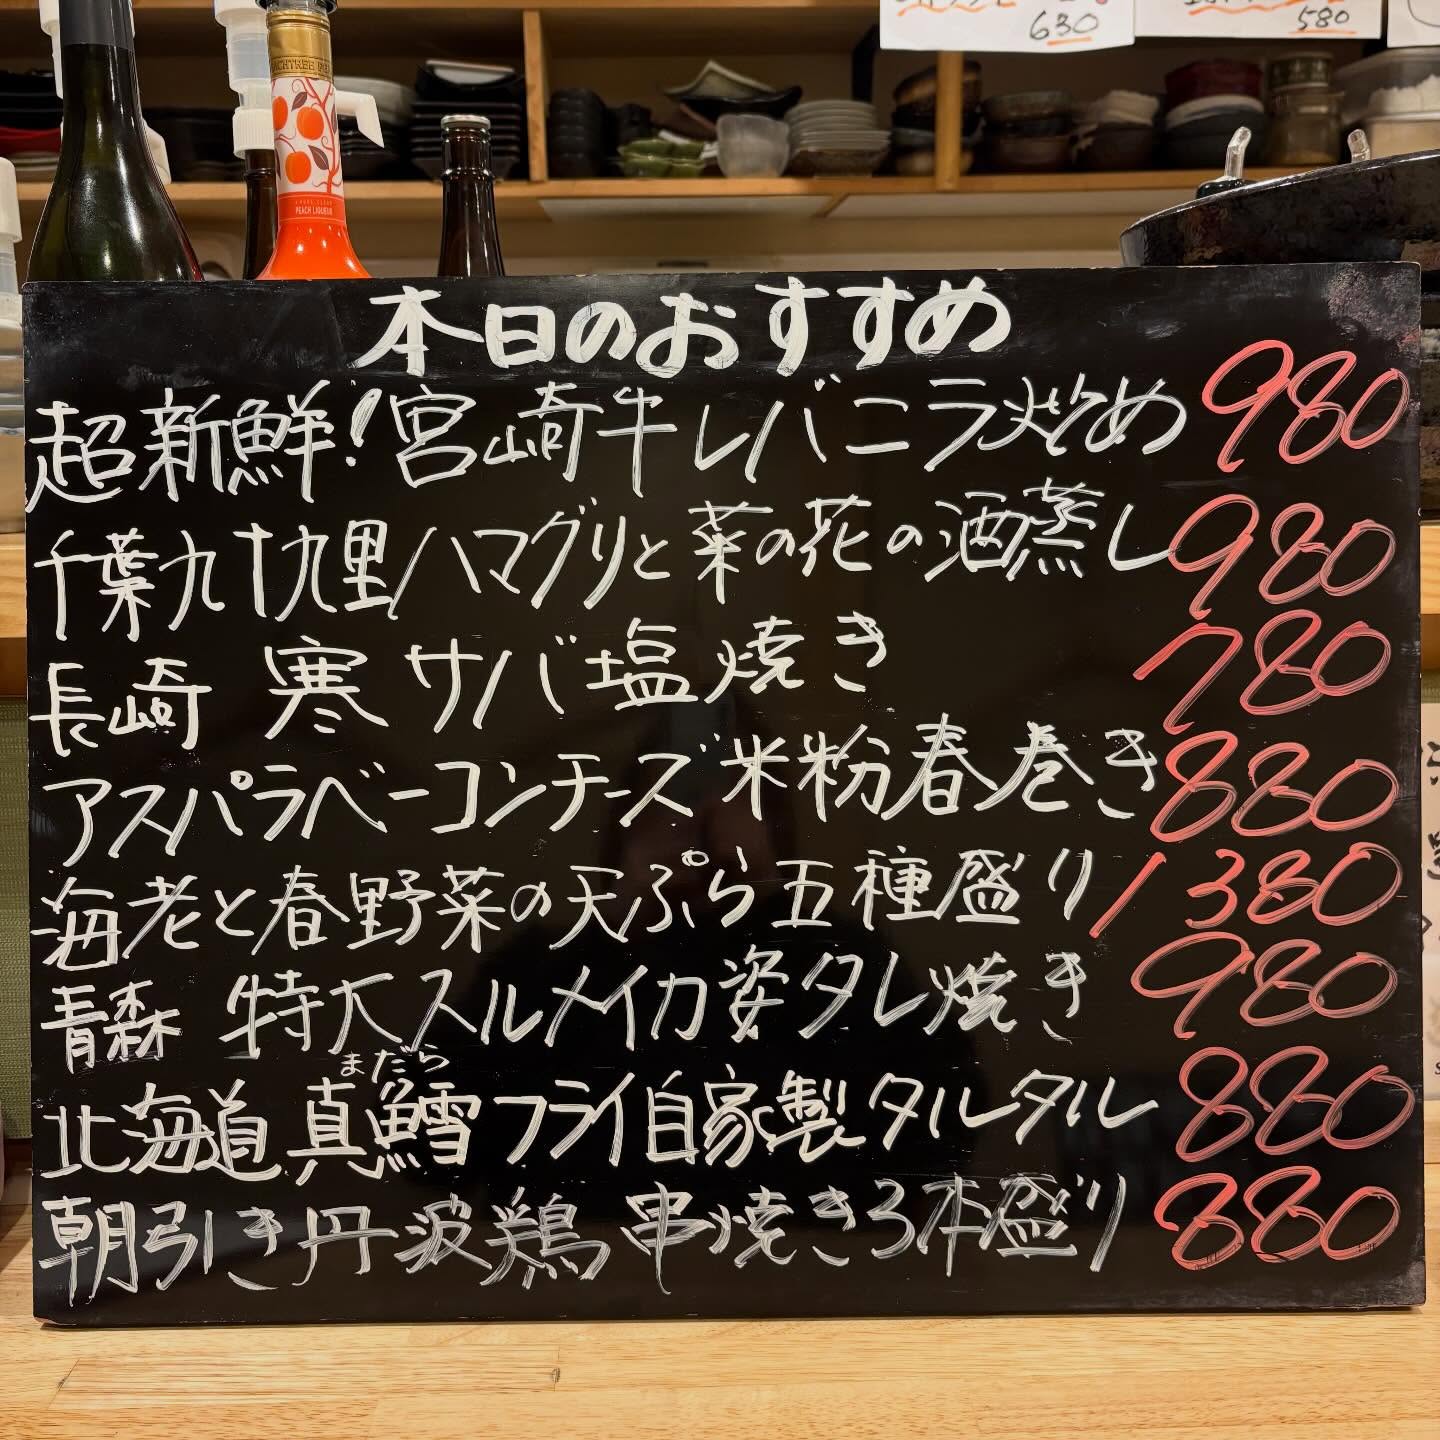 630
580
PEACH LIQUEUR
本日のおすすめ
超新鮮!宮崎牛レバニラ炒め 980
千葉九十九里ハマグリと菜の花の酒蒸し 980
長崎 寒サバ塩焼き 780
アスパラベーコンチーズ米粉春巻き 880
海老と春野菜の天ぷら五種盛り 1380
青森 特大スルメイカ姿タレ焼き 980
まだら
北海道真鱈フライ自家製タルタル 880
朝引き丹波鶏串焼き3本盛り 880